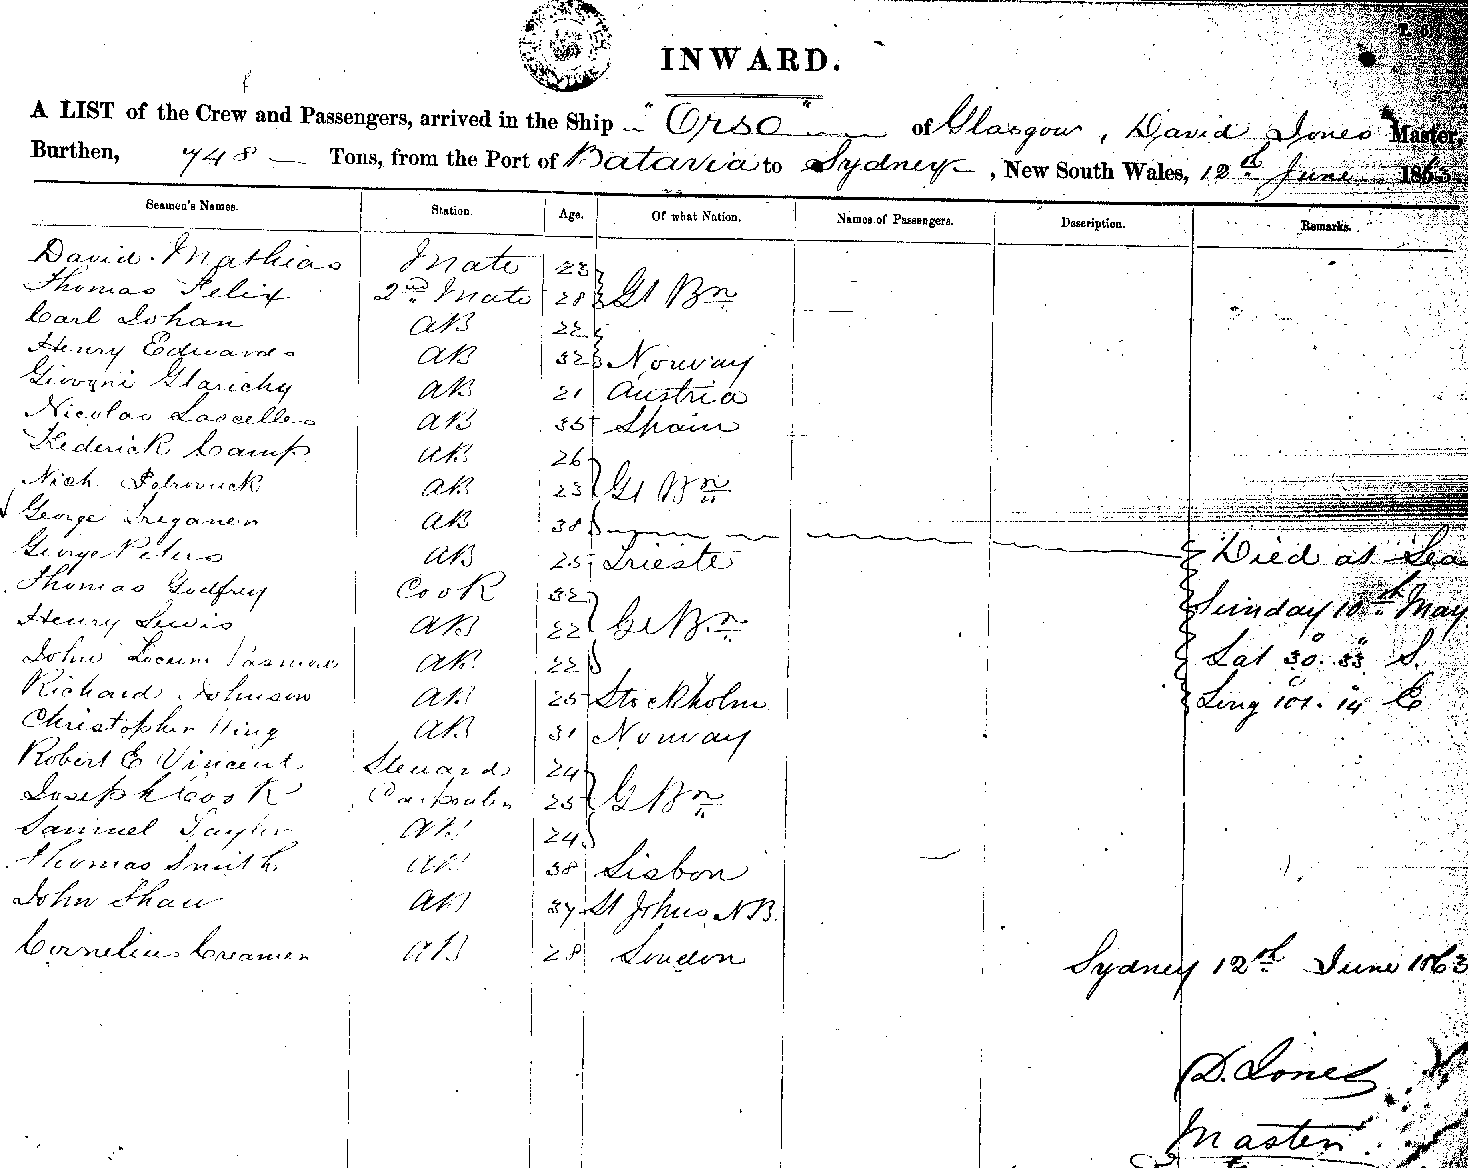 INWARD.
A LIST of the Crew and Passengers, arrived in the Ship "Orsa" of Glasgow, David Jones Master,
Burthen, 748 Tons, from the Port of Batavia to Sydney, New South Wales, 12th June 1863.
Seamen's Names. Station. Age. Of what Nation. Names of Passengers. Description. Remarks.
David Mathias Mate 23
Thomas Felix 2nd Mate 28 Gt Bn
Carl Johan AB 22
Henry Edwards AB 32 Norway
Giovani Glarichy AB 21 Austria
Nicolas Lascelles AB 35 Spain
Frederick Camp AB 26
Nich Petrovick AB 23 Gt Bn
George Treganen AB 38
George Peters AB 25 Trieste Died at Sea
Thomas Godfrey Cook 32 Sunday 10th May
Henry Lewis AB 22 Gt Bn
John AB 22 Lat 30° 33" S.
Richard Johnson AB 25 Stockholm Long 101° 14" E
Christopher King AB 31 Norway
Robert E Vincent Steward 24
Joseph Cook Carpenter 25 G Bn
Samuel Taylor AB 24
Thomas Smith AB 38 Lisbon
John Shaw AB 37 St Johns N.B.
Cornelius Creamer AB 28 London
Sydney 12th June 1863
D. Jones
Master